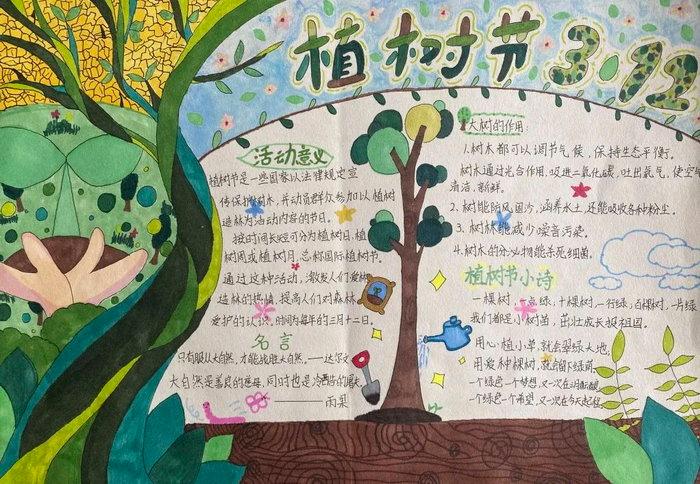 植树节 3.12
活动意义
植树节是一些国家以法律规定宣
传保护树木，并动员群众参加以植树
造林为活动内容的节日。
按时间长短可分为植树日，植
树周或植树月，总称国际植树节。
通过这种活动，激发人们爱林
造林的热情，提高人们对森林
爱护的认识，时间为每年的三月十二日。
名言
只有服从大自然，才能战胜大自然。——达尔文
大自然是善良的慈母，同时也是冷酷的屠夫。
——雨果
大树的作用：
1.树木都可以调节气候，保持生态平衡。
树木通过光合作用，吸进二氧化碳，吐出氧气，使空气
清洁，新鲜。
2.树能防风固沙，涵养水土，还能吸收各种粉尘。
3.树林能减少噪音污染。
4.树木的分泌物能杀死细菌。
植树节小诗
一棵树，一点绿，十棵树，一行绿，百棵树，一片绿
我们都是小树苗，茁壮成长报祖国。
用心植小草，就会翠绿大地，
用爱种棵树，就会留下绿荫。
一个绿色一个梦想，又一次在
一个绿色一个希望，又一次在今天起程